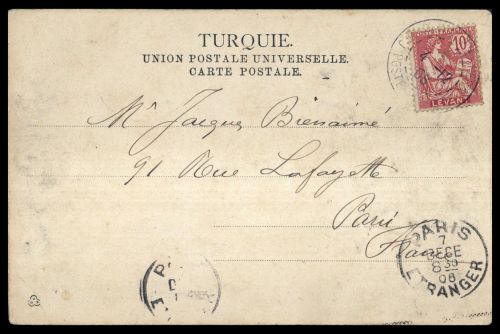 TURQUIE.
UNION POSTALE UNIVERSELLE.
CARTE POSTALE.
10
LEVANT
Mr Jacques Bienaimé
91 Rue Lafayette
Paris
France
PARIS
7
DECE
8 30
08
ETRANGER
P
D
1
E